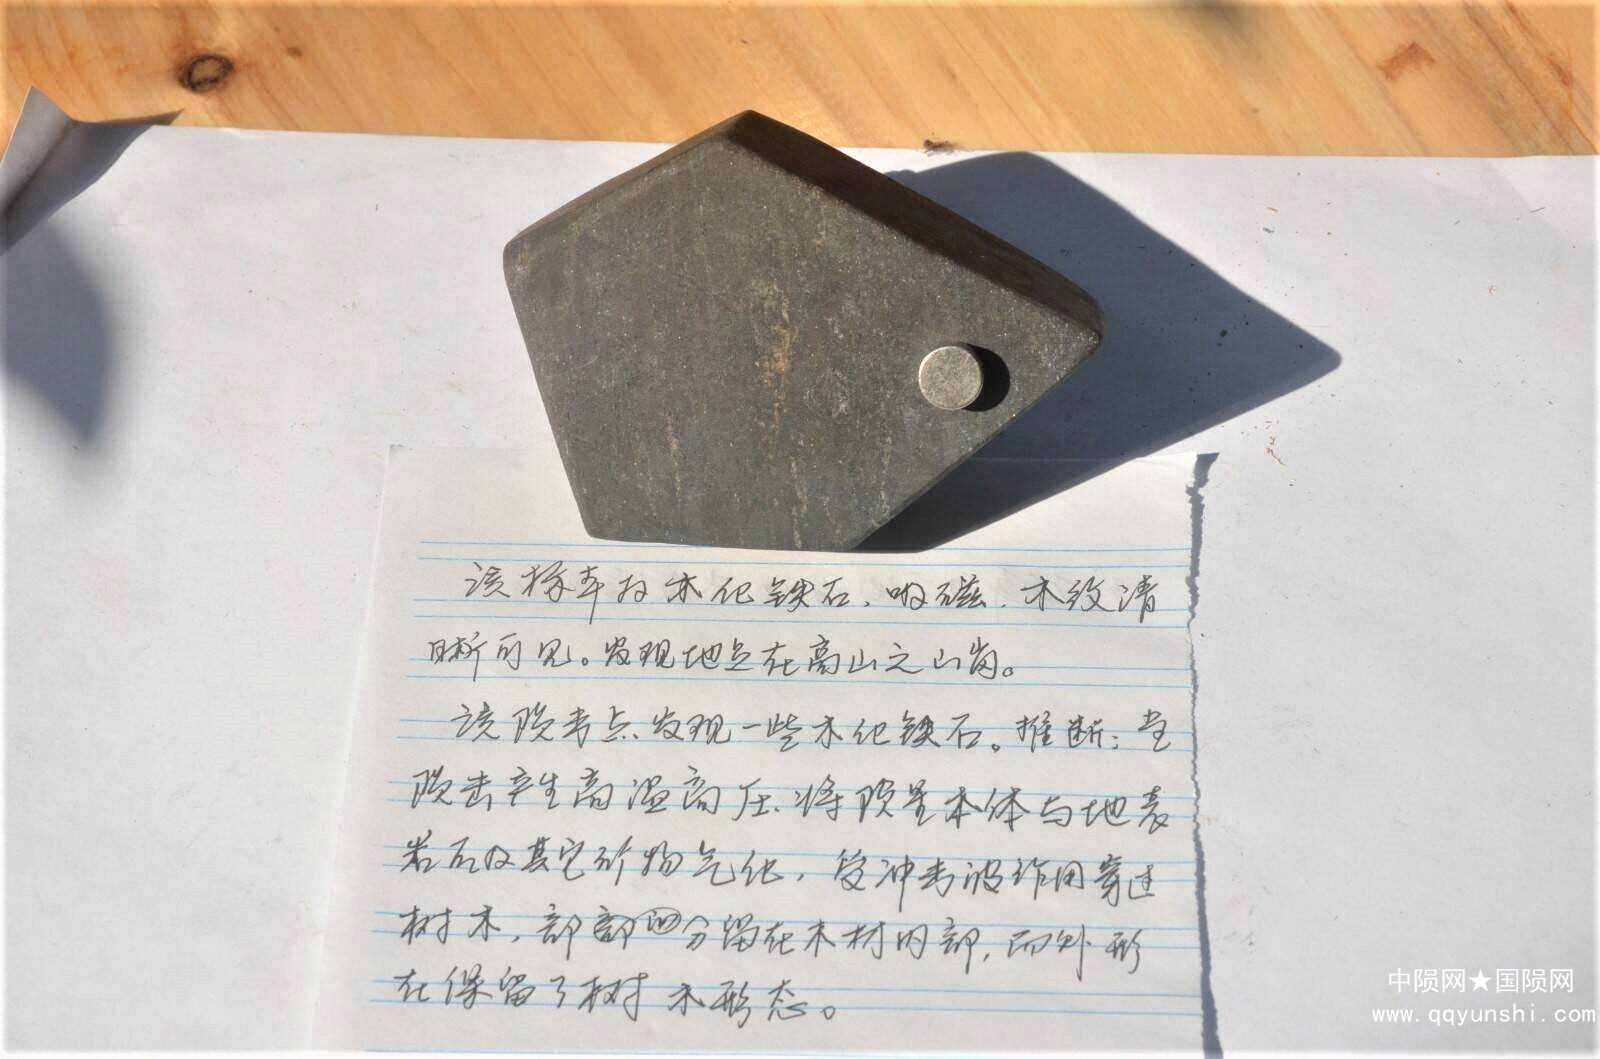 该标本为木化铁石、吸磁、木纹清
晰可见。发现地点在高山之山岗。
该陨击点、发现一些木化铁石。推断：当
陨击产生高温高压、将陨星本体与地表
岩石及其它矿物气化，受冲击波作用穿过
树木，部部分留在木材内部，而外形
在保留了树木形态。
中陨网★国陨网
www.qqyunshi.com